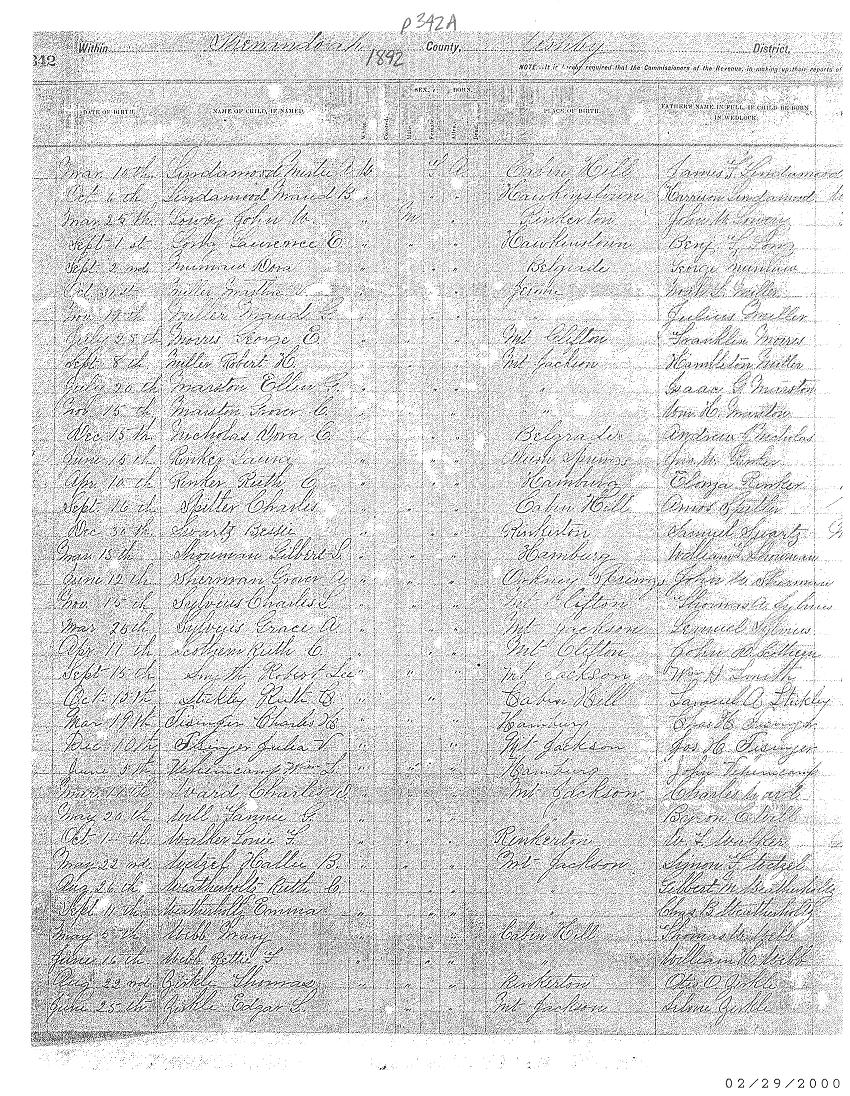 p342A
Within Shenandoah County, Ashby District,
342 1892
NOTE.—It is hereby required that the Commissioners of the Revenue, in making up their reports of
SEX. BORN.
DATE OF BIRTH. NAME OF CHILD, IF NAMED. White. Colored. Male. Female. Alive. Dead. PLACE OF BIRTH. FATHER'S NAME IN FULL, IF CHILD BE BORN IN WEDLOCK.
Mar 10th Lindamood W F A Cabin Hill James F Lindamood
Oct 6th Lindamood Maud B " " " Hawkinstown Harrison Lindamood
Mar 25th Lowry John W. " M " Rinkerton John W Lowry
Sept 1st Long Lawrence E " " " Hawkinstown Benj F Long
Sept 2nd Mumaw Dora " " " Belgrade George Mumaw
Oct 31st Miller " " " Jerome Miller
Nov 19th Miller Maud " " " " Julius Miller
July 28th Morris George E. " " " Mt Clifton Franklin Morris
Sept 8th Miller Robert H. " " " Mt Jackson Hambleton Miller
July 20th Marston Ellen G. " " " " Isaac G Marston
Nov 15th Marston Grover C. " " " " Wm H. Marston
Dec 15th Nicholas Dora C " " " Belgrade Andrew Nicholas
June 15th Rinker Laura " " " Springs Rinker
Apr 10th Rinker Ruth C " " " Hamburg Rinker
Sept 16th Spitler Charles " " " Cabin Hill Amos Spitler
Dec 30th Swartz Bessie " " " Rinkerton Samuel Swartz
Mar 15th Showman Gilbert S. " " " Hamburg William Showman
June 12th Sherman Grover " " " Orkney Springs John W Sherman
Nov 15th Sylvius Charles L. " " " Mt Clifton Thomas A Sylvius
Mar 26th Sylvius Grace A. " " " Mt Jackson Lemuel Sylvius
Apr 11th Ruth C " " " Mt Clifton John
Sept 15th Smyth Robert Lee " " " Mt Jackson Wm H Smith
Oct 13th Stickley Ruth B " " " Cabin Hill Samuel A Stickley
Mar 19th Tisinger Charles H. " " " Hamburg H Tisinger
Dec 10th Tisinger Julia V " " " Mt Jackson Jos H. Tisinger
June 5th Vehencamp Wm L " " " Hamburg John Vehencamp
Mar Ward Charles " " " Mt Jackson Charles Ward
May 20th Will Fannie G. " " " " Byron C Will
Oct 1st Walker Lonie F. " " " Rinkerton W F Walker
May 22nd Wetzel Hallie B. " " " Mt Jackson Wetzel
Aug 26th Weatherholtz Ruth C. " " " " Gilbert M Weatherholtz
Sept 11th Weatherholtz Emma " " " " Chas B Weatherholtz
May 5th Webb Mary " " " Cabin Hill Thomas W Webb
June 16th Webb F " " " " William C Webb
Aug 22nd Zirkle Thomas " " " Rinkerton Otis O Zirkle
June 25th Zirkle Edgar L. " " " Mt Jackson Zirkle
02/29/2000